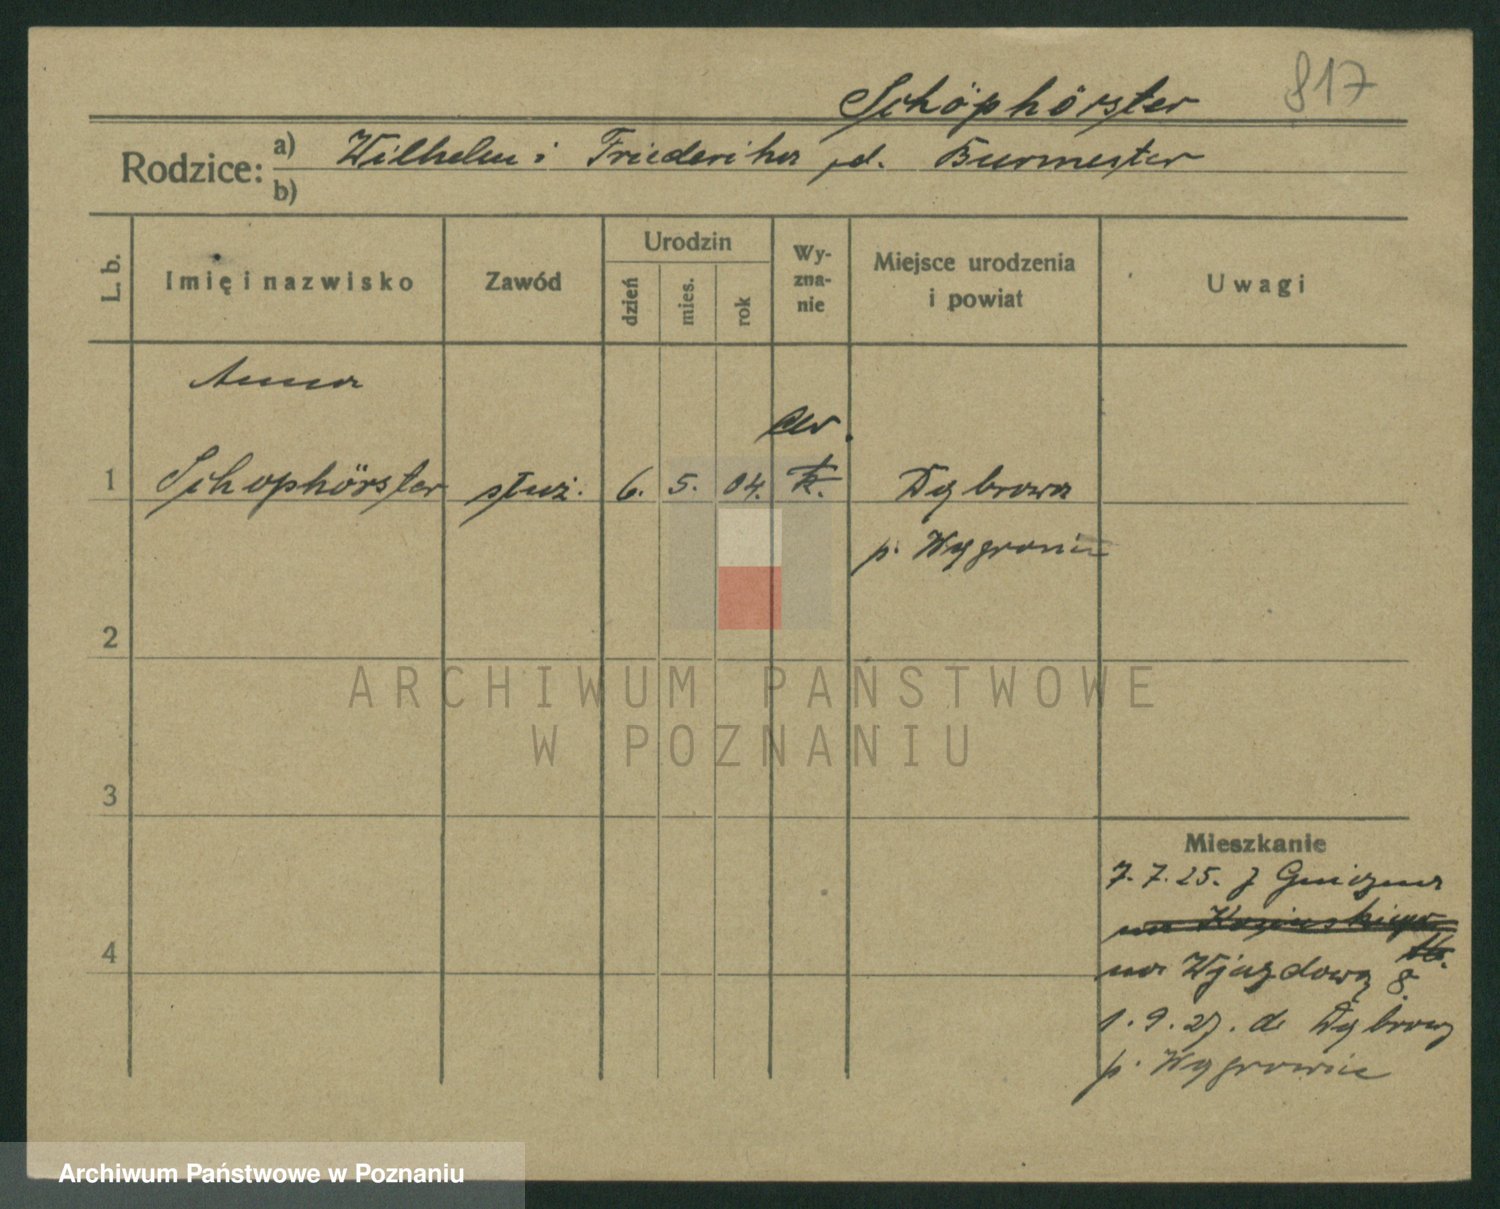 817
Schöphörster
Rodzice: a) Wilhelm i Friederika d. Burmester
b)
L. b. Imię i nazwisko Zawód Urodzin dzień mies. rok Wyzna-nie Miejsce urodzenia i powiat Uwagi
Anna
ew.
1 Schophörster służ. 6. 5. 04. k. Dąbrowa
p. Wągrowiec
2
ARCHIWUM PAŃSTWOWE
W POZNANIU
3
Mieszkanie
7. 7. 25. z Gniezna
na
4
na Wjazdową 8.
1. 9. 27. do Dąbrowy
p. Wągrowiec
Archiwum Państwowe w Poznaniu